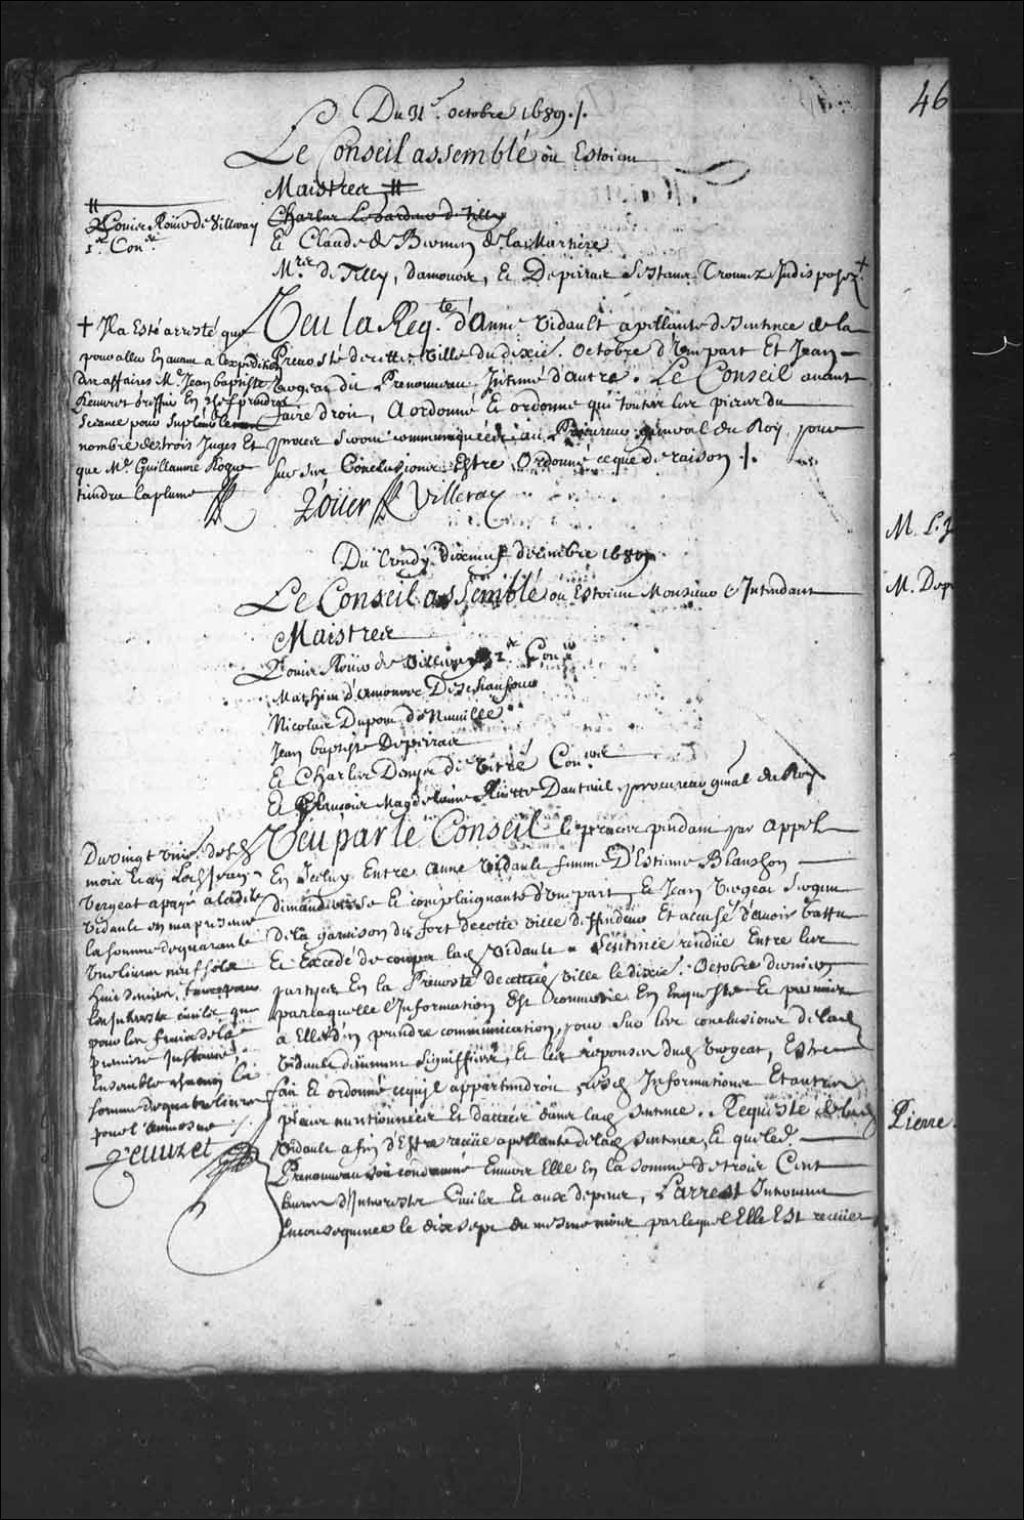 46
Du 31e. octobre 1689 ./.
Le Conseil assemblé où Estoient
Maistres #
# Louis Roüer de Villeray
1er. Coner.
Charles Legardeur de Tilly
Et Claude de Bermen de la Martiere
Mrs. de Tilly, damours, Et Depeiras s'estans trouvez Indisposez +
Veu la Reqte. d'Anne Vidault apellante de sentence de la
Prevosté de cette Ville du dixie. Octobre d'Une part Et Jean
Vergeat dit Prenouveau Intimé d'autre. Le Conseil avant
faire droit, A ordonné Et ordonne que toutes les pieces du
procez seront communiquées au Procureur general du Roy pour
sur ses Conclusions Estre Ordonné ce que de raison ./.
+ Il a Esté arresté que
pour aller En avant à l'expedition
des affaires Me. Jean baptiste
Peuvret Greffier En chef prendra
seance pour supléer le
nombre de trois Juges Et
que Me. Guillaume Roger
tiendra la plume
Roüer Villeray
Du Lundy dixneuf decembre 1689
Le Conseil assemblé où Estoient Monsieur l'Intendant
Maistres
Louis Roüer de Villeray 1er Coner
Mathieu d'amours Deschaufour
Nicolas Dupont de Neuville
Jean baptiste Depeiras
Et Charles Denys de Vitré Coners
Et François Magdelaine Ruette Dauteuil procureur gnal du Roy
Veu par le Conseil le procez pendant par appel
En Iceluy Entre Anne Vidault femme D'Estienne Blanchon
demanderesse Et complaignante d'Une part, Et Jean Vergeat Sergent
de la garnison du fort de cette ville deffendeur Et accusé d'avoir battu
Et Excedé de coups lad Vidault, sentence rendüe Entre les
parties En la Prevosté de cette Ville le dixie. Octobre dernier
par laquelle l'Information Est convertie En Enqueste Et permis
a Elle d'en prendre communication, pour sur les conclusions de lad
Vidault deüment signiffiées, Et les reponses dud Vergeat, Estre
fait Et ordonné ce qu'il appartiendroit, lesd Informations Et autres
pieces mentionnées Et dattées dans lad sentence. Requeste de lad
Vidault afin d'Estre receüe apellante de lad sentence, Et que led.
Prenouveau soit condamné Envers Elle En la somme de trois Cent
livres d'Interests Civils Et aux depens, L'arrest Intervenu
En consequence le dix sept du mesme mois par lequel Elle Est receüe
Du vingt
mois Et an
Vergeat a payé a ladite
Vidault en ma presence
la somme de quarante
Une livres neuf sols
huit deniers, tant pour
les Interests civils que
pour les frais de la
premiere Instance
Ensemble
somme de quatre livres
pour l'aumosne ./.
Peuvret
M. L.
M. Dep
Pierre